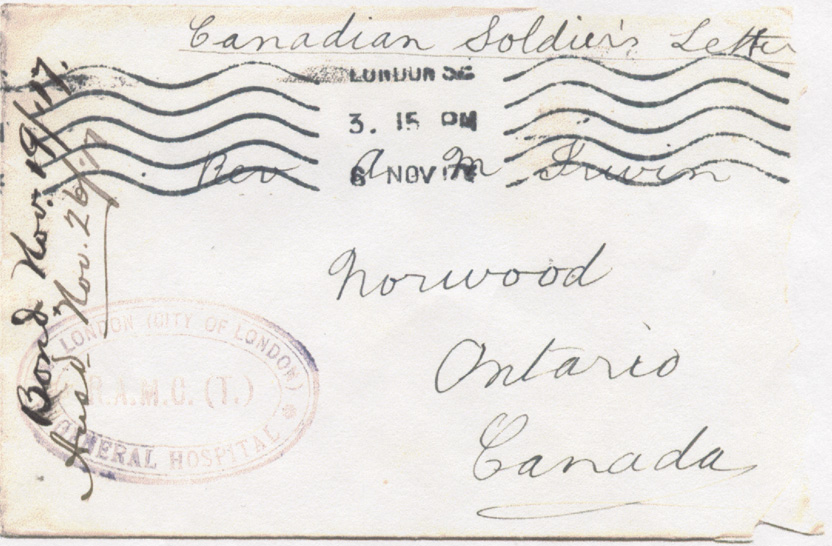 Canadian Soldier's Letter
LONDON S.E.
3. 15 PM
6 NOV 17
Rev A M Irwin
Norwood
Ontario
Canada
Bond Nov. 19/17.
Nov. 26/17
LONDON (CITY OF LONDON)
R.A.M.C. (T.)
GENERAL HOSPITAL